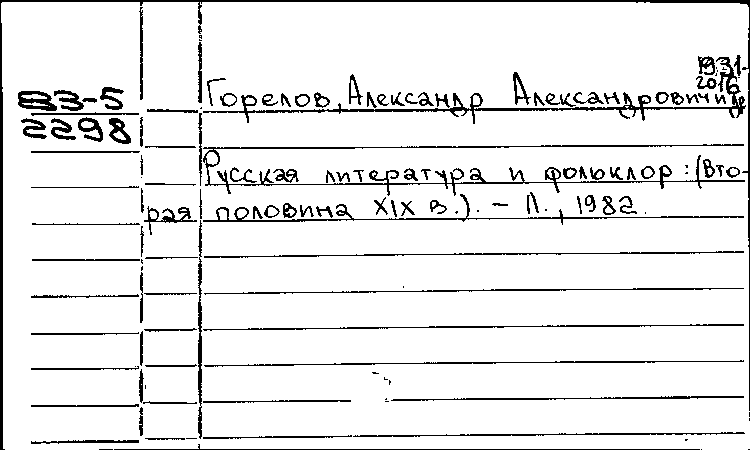 1931-
2016
83-5 Горелов, Александр Александрович и др
2298
Русская литература и фольклор : (Вто-
рая половина XIX в.). - Л., 1982.